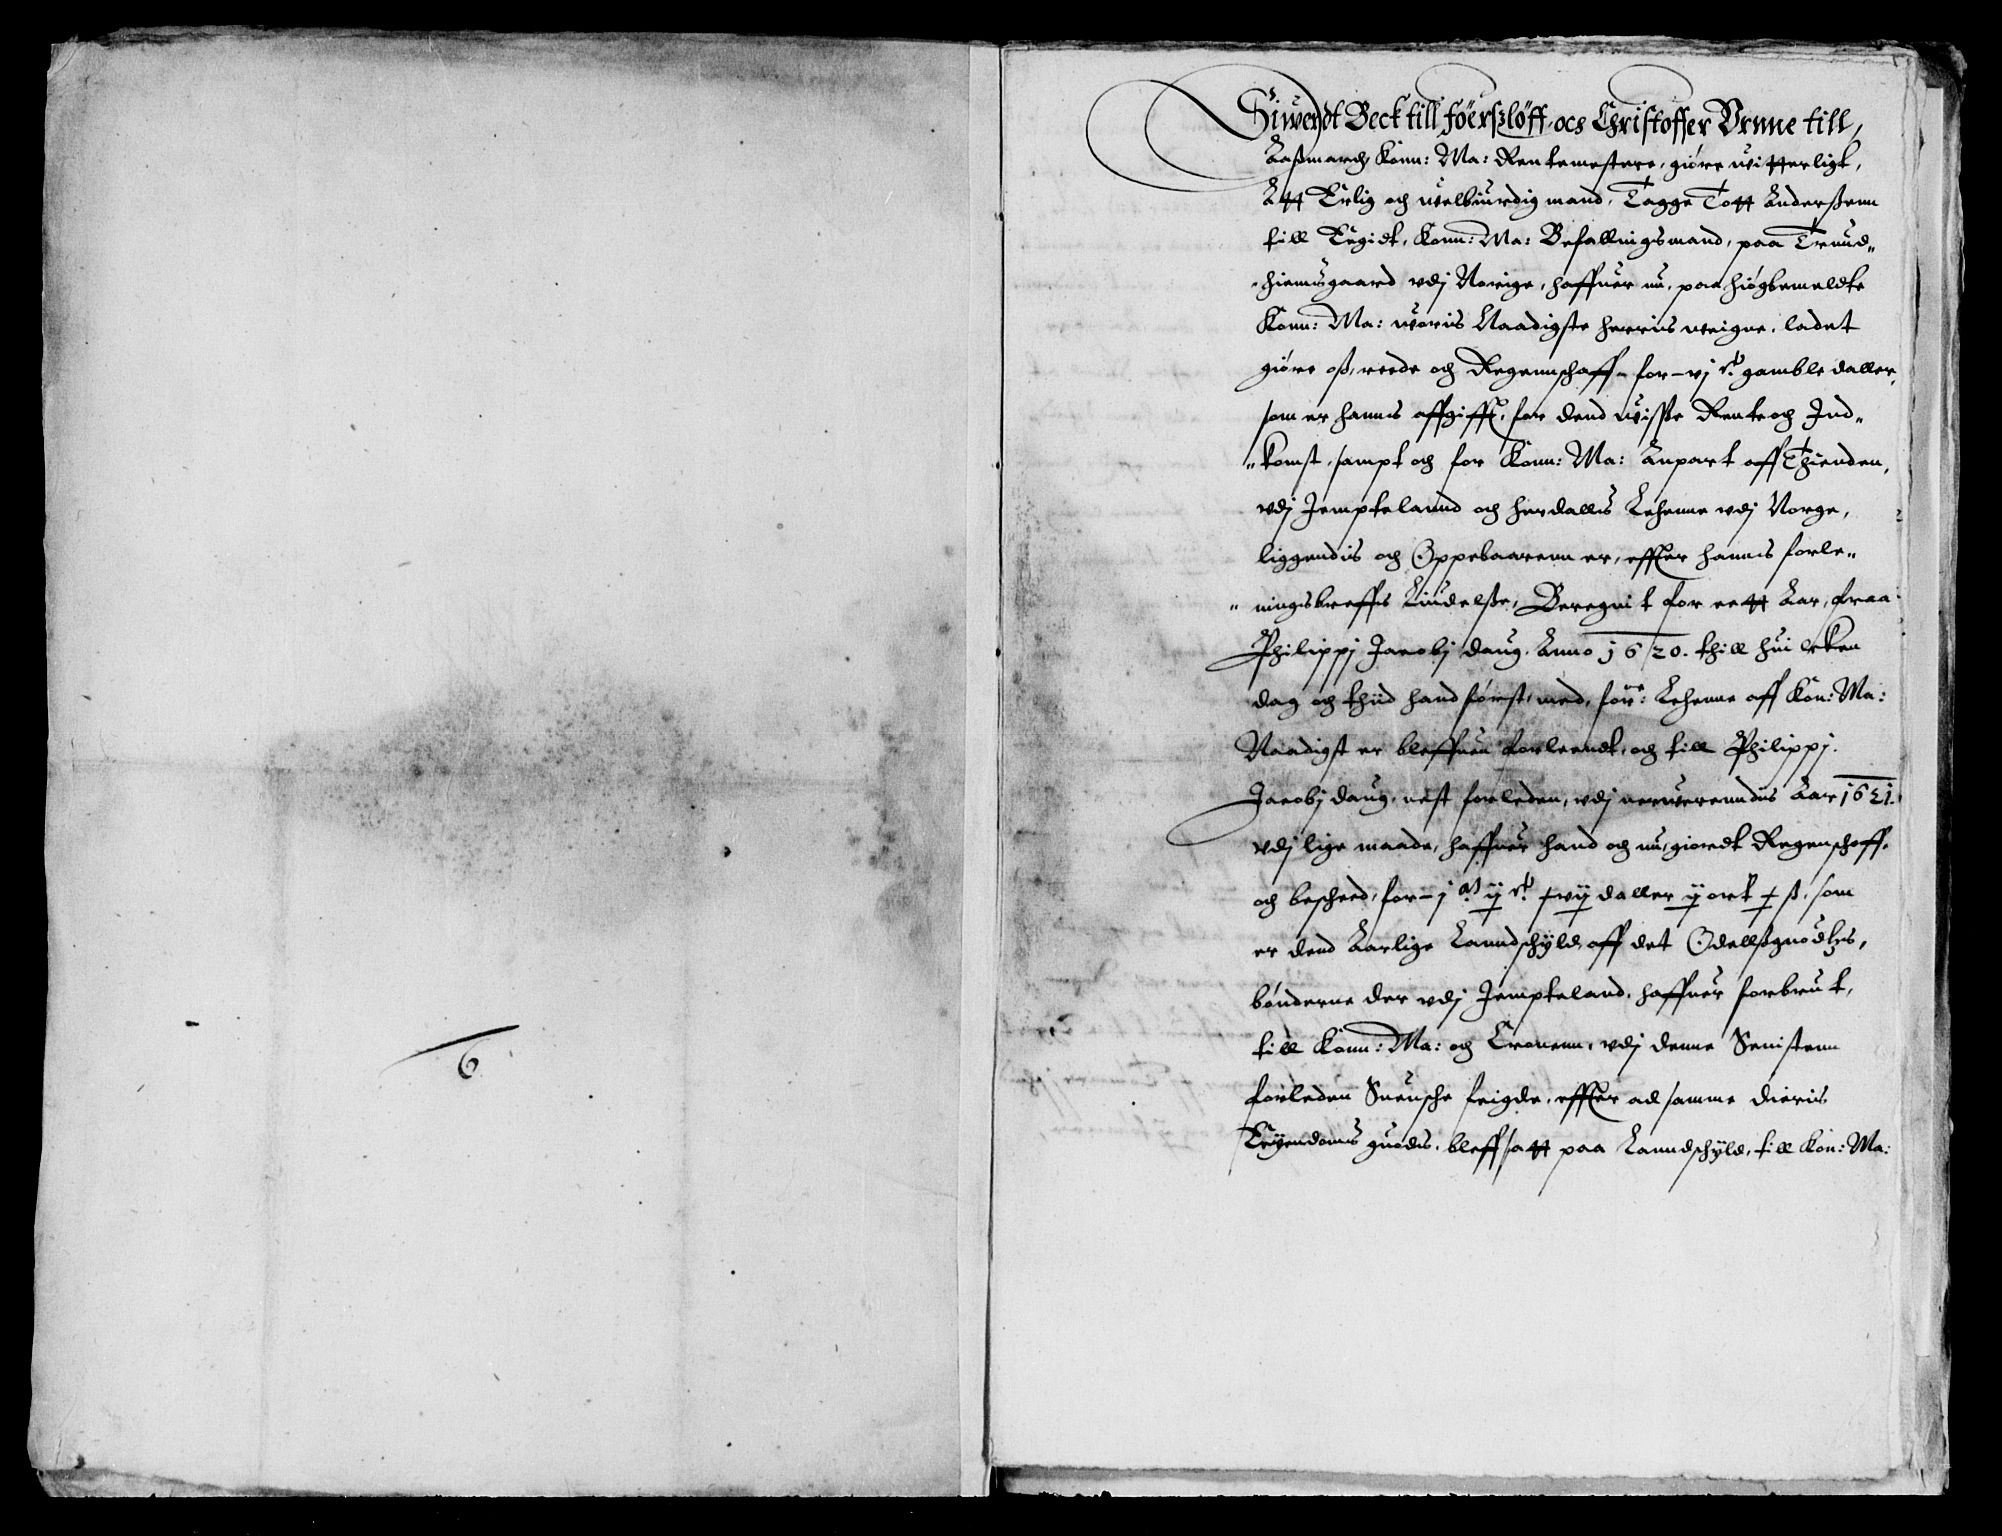 6
Siwerdt Beck till Föerszlöff, ocs Christoffer Vrnne till,
Aaßmarch, Konn: Ma: Rentemestere, giøre witterligt,
Att Erlig och welbiurdig mand, Tagge Tott Anderßenn
till Eegidt, Konn: Ma: Befallingsmand, paa Trund„
„hiemsgaard vdj Norige, haffuer nu, paa høgbemeldte
Konn: Ma: woris Naadigste herris weigne, ladet
giøre oß, reede och Regennschaff, for – vj c. gamble daller,
som er hannis affgifft, for dend wiße Rente och Ind„
„komst, sampt och for Konn: Ma: Anpart aff Thienden,
vdj Jempteland och herdallis Lehenne vdj Norge,
liggendis och Oppebaarenn er, effter hannis forle„
„ningsbreffs Liudelße, Beregnit for eett Aar, fraa
Philippj Jacobj daug, Anno 1620. thill huilcken
dag och thiid hand først, med, forne: Lehenne aff Kon: Ma:
Naadigst er bleffuen forleendt, och till Philippj
Jacobj daug, nest forleden, vdj nerwerenndis Aar 1621.
vdj lige maade, haffuer hand och nu, giordt Regenschaff,
och bescheed, for – j m ij c xvij daller ij ort x ß, som
er dend Aarlige Lanndschyld, aff det Odellßguodtzs,
bønderne der vdj Jempteland, haffuer forbrut,
till Konn: Ma: och Cronenn, vdj denne Senistenn
forleden Suensche feigde, effter ad samme dieris
Eyendoms guodis, bleff satt paa Lanndschyld, till Kon: Ma: